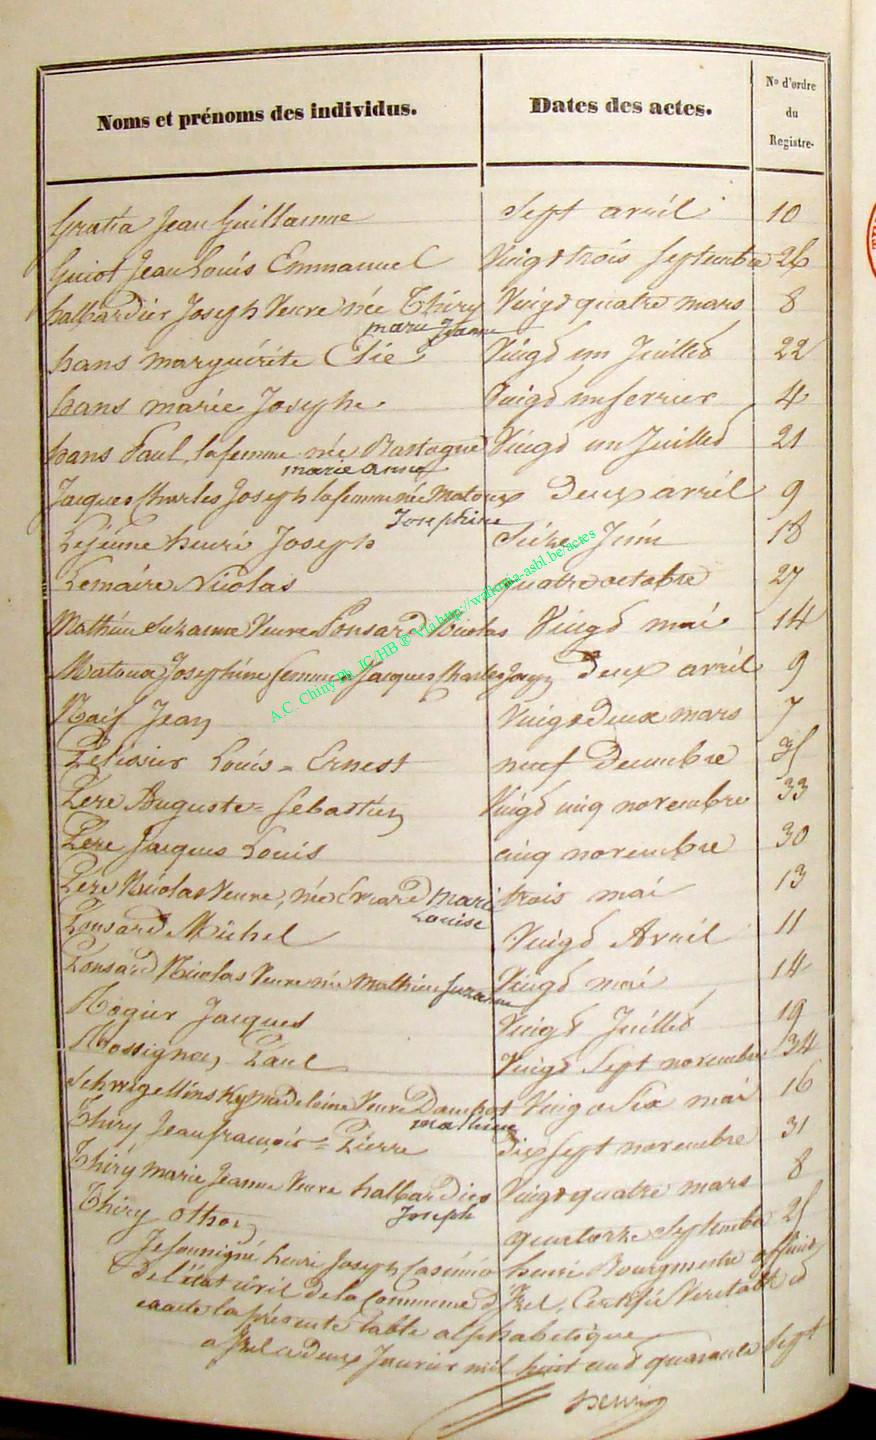 Noms et prénoms des individus. Dates des actes. No d'ordre du Registre.
Gratia Jean Guillaume Sept avril 10
Guiot Jean Louis Emmanuel Vingt trois Septembre 26
halbardier Joseph Veuve née Thiry Vingt quatre mars 8
marie Jeanne
hans marguérite Elie Vingt un Juillet 22
hans marie Josephe Vingt un fevrier 4
hans Paul, la femme née Bastogne Vingt un Juillet 21
marie anne
Jacques Charles Joseph la femme née Matoux Deux avril 9
Josephine
Lejeune henri Joseph Seize Juin 18
Lemaire Nicolas quatre octobre 27
Mathieu Suzanne Veuve Ponsard Nicolas Vingt mai 14
Matoux Josephine femme Jacques Charles Joseph deux avril 9
Naif Jean Vingt Deux mars 7
Louis - Ernest neuf Decembre 35
Pere Auguste = Sebastien Vingt cinq novembre 33
Pere Jacques Louis cinq novembre 30
Pere Nicolas Veuve, née Evrard marie trois mai 13
Louise
Ponsard Michel Vingt Avril 11
Ponsard Nicolas Veuve née Mathieu Suzanne Vingt mai 14
Rogier Jacques Vingt Juillet 19
Rossignon Paul Vingt Sept novembre 34
Madeleine Veuve Vingt Six mai 16
Thiry Jean françois = Pierre dix Sept novembre 31
Thiry marie Jeanne Veuve halbardier Vingt quatre mars 8
Joseph
Thiry othon quatorze Septembre 25
Je Soussigné henri Joseph Casimir henri Bourgmestre officier
De l'état civil de la Commune d'Izel, Certifie Veritable et
exacte la présente table alphabetique
a Izel ce deux Janvier mil huit cent quarante Sept
henri
A.C. Chiny Ph. JC/HB ® Via http://walkinia-asbl.be/actes